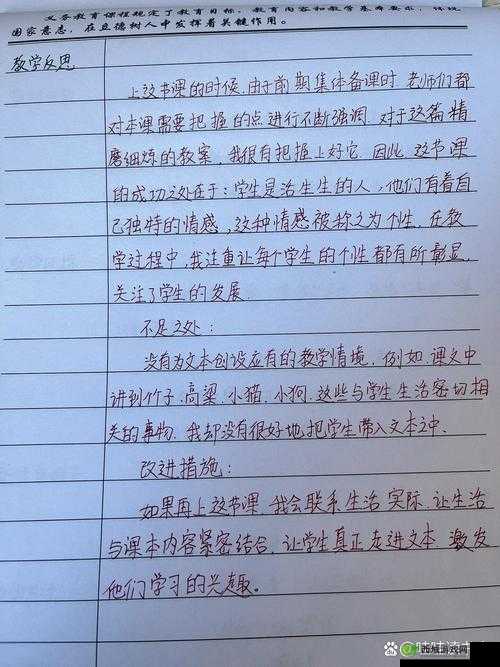 义务教育课程规定了教育目标、教育内容和教学基本要求，体现
国家意志，在立德树人中发挥着关键作用。
教学反思
上这节课的时候，由于前期集体备课时，老师们都
对本课需要把握的点进行不断强调，对于这篇精
磨细炼的教案，我很有把握上好它。因此，这节课
的成功之处在于：学生是活生生的人，他们有着自
己独特的情感，这种情感被称之为个性，在教
学过程中，我注重让每个学生的个性都有所彰显，
关注了学生的发展。
不足之处：
没有为文本创设应有的教学情境，例如，课文中
讲到竹子、高粱、小猫、小狗，这些与学生生活密切相
关的事物，我却没有很好地把学生带入文本之中。
改进措施：
如果再上这节课，我会联系生活实际，让生活
与课本内容紧密结合，让学生真正走进文本，激发
他们学习的兴趣。
西城游戏网